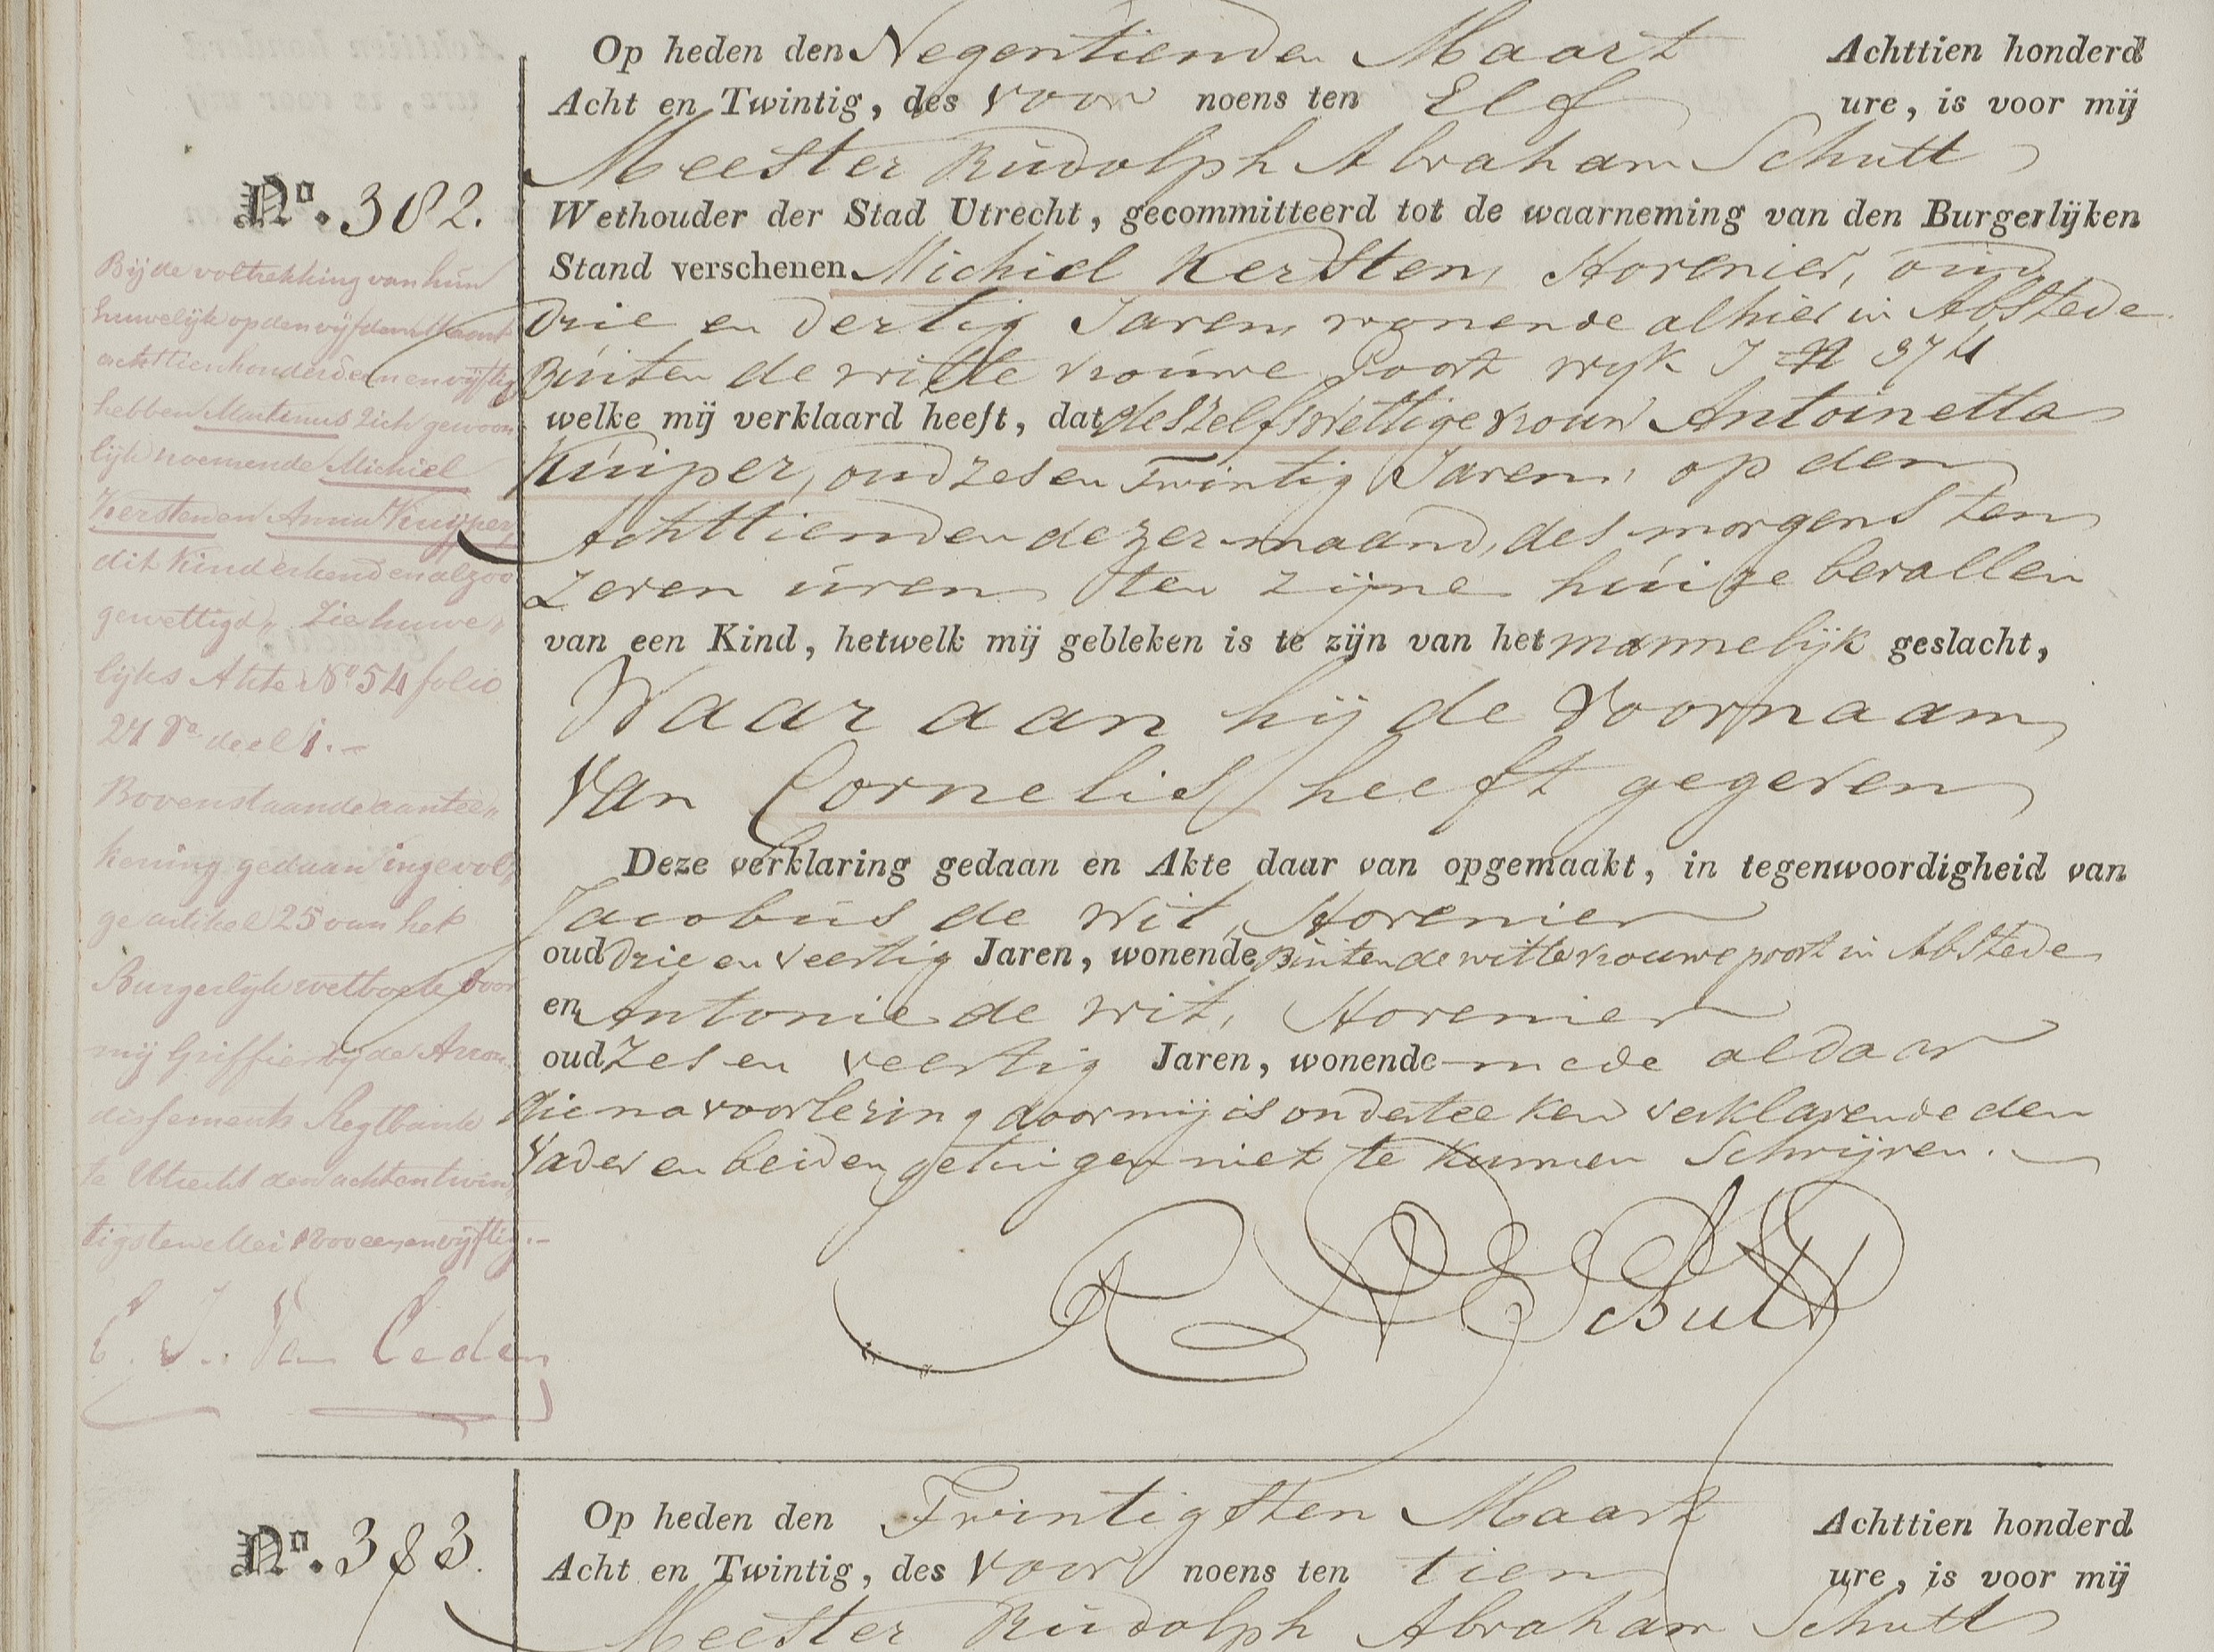 Op heden den Negentienden Maart Achttien honderd
Acht en Twintig, des voor noens ten Elf ure, is voor mij
Meester Rudolph Abraham Schutt
No. 382.
Wethouder der Stad Utrecht, gecommitteerd tot de waarneming van den Burgerlijken
Stand verschenen Michiel Kersten, Hovenier, oud
drie en dertig Jaren, wonende alhier in Abstede
Buiten de witte vrouwe Poort wyk I No 374
welke mij verklaard heeft, dat deszelfs wettige vrouw Antoinetta
Kuiper, oud zes en Twintig Jaren, op den
Achttienden dezer maand, des morgens ten
zeven uren ten zijne huize bevallen
van een Kind, hetwelk mij gebleken is te zijn van het mannelijk geslacht,
Waar aan hij de voornaam
van Cornelis heeft gegeven
Deze verklaring gedaan en Akte daar van opgemaakt, in tegenwoordigheid van
Jacobus de Wit, Hovenier
oud drie en veertig Jaren, wonende Buiten de witte vrouwe poort in Abstede
en Antonie de Wit, Hovenier
oud zes en veertig Jaren, wonende mede aldaar
die na voorlezing door mij is onderteekend verklarende den
Vader en beiden getuigen niet te kunnen Schrijven.
R A Schutt
Bij de voltrekking van hun
huwelijk op den vijfden Maart
achttienhonderd een en vijftig
hebben Martinus zich gewoon
lijk noemende Michiel
Kersten en Anna Kuijper,
dit kind erkend en alzoo
gewettigd, Zie huwe"
lijks Akte No 54 folio
27 vo deel 1.-
Bovenstaande aantee"
kening gedaan ingevol"
ge artikel 25 van het
Burgerlijk wetboek door
mij Griffier bij de Arron"
dissements Regtbank
te Utrecht den achtentwin"
tigsten Mei 1800 een en vijftig.-
No. 383.
Op heden den Twintigsten Maart Achttien honderd
Acht en Twintig, des voor noens ten tien ure, is voor mij
Meester Rudolph Abraham Schutt